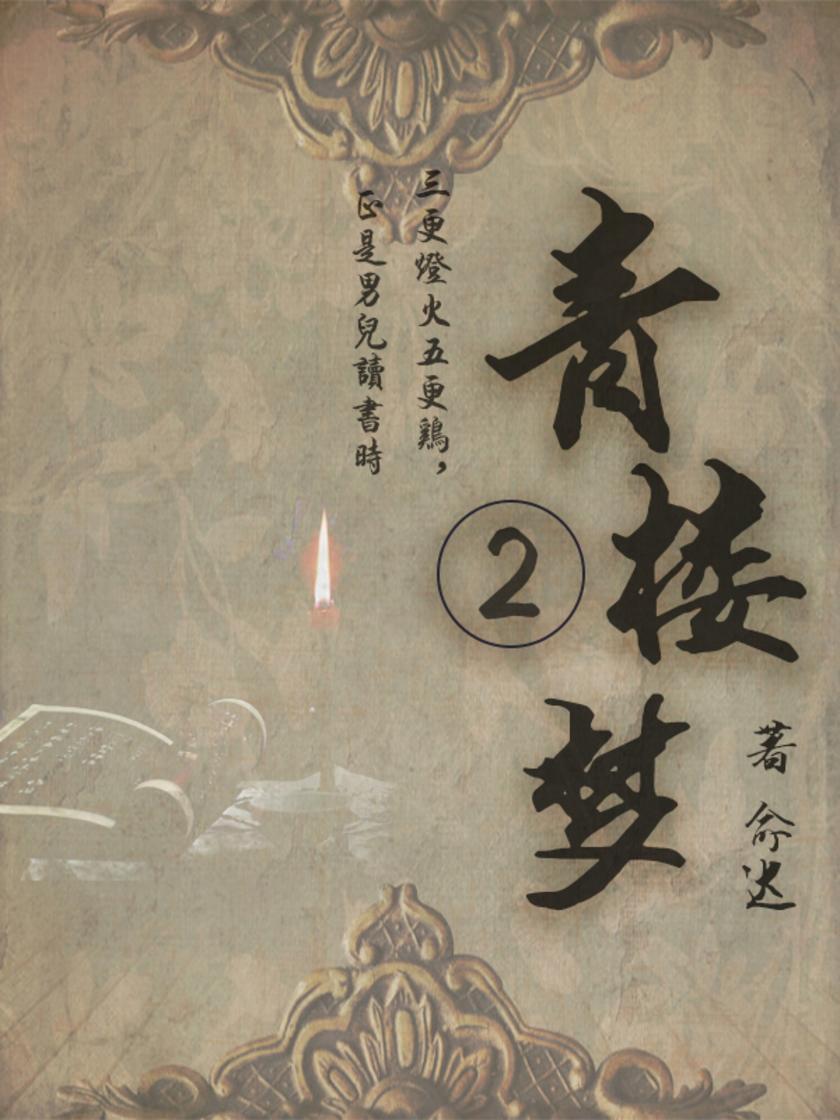 青楼梦
2
著 俞达
三更燈火五更鷄，
正是男兒讀書時